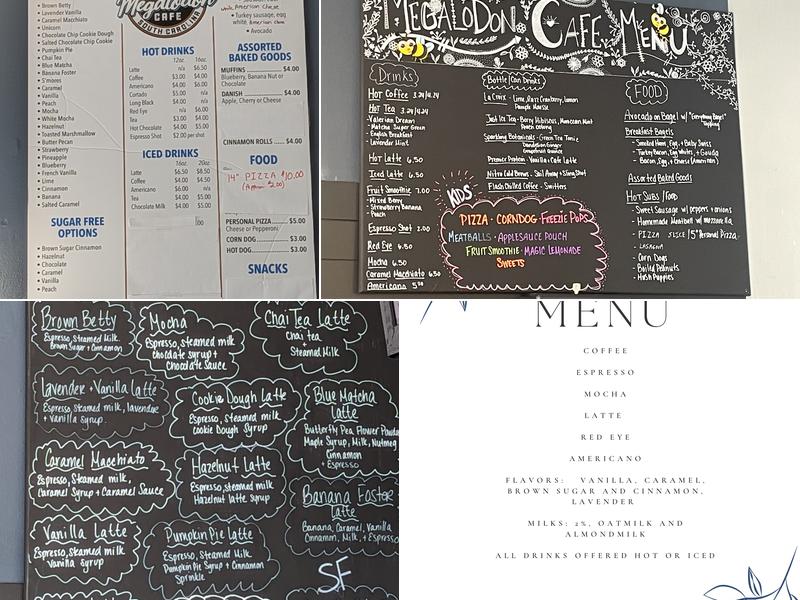 Brown Betty
Vanilla
Caramel Macchiato
Unicorn
Chocolate Chip Cookie Dough
Salted Chocolate Chip Cookie
Pumpkin Pie
Chai Tea
Blue Matcha
Banana Foster
S'mores
Caramel
Vanilla
Peach
Mocha
White Mocha
Hazelnut
Toasted Marshmallow
Butter Pecan
Strawberry
Pineapple
Blueberry
French Vanilla
Lime
Cinnamon
Banana
Salted Caramel
SUGAR FREE
OPTIONS
Brown Sugar Cinnamon
Hazelnut
Chocolate
Caramel
Vanilla
Peach
Megalodon
CAFE
SOUTH CAROLINA
HOT DRINKS
12oz. 16oz.
Latte n/a $6.50
Coffee $3.00 $4.00
Americano $4.00 $6.00
Cortado $5.00 n/a
Long Black $4.00 n/a
Red Eye n/a $6.00
Tea $3.00 $4.00
Hot Chocolate $4.00 $5.00
Espresso Shot $2.00 per shot
ICED DRINKS
16oz. 20oz.
Iced Latte $6.50 $8.50
Coffee $4.00 $5.00
Americano $6.00 n/a
Tea $4.00 $5.00
Chocolate Milk $4.00 $5.00
American Cheese
• Turkey sausage, egg
white, American cheese
• Avocado
ASSORTED
BAKED GOODS
MUFFINS $4.00
Blueberry, Banana Nut or
Chocolate
DANISH $4.00
Apple, Cherry or Cheese
CINNAMON ROLLS $4.00
FOOD
14" PIZZA $10.00
PERSONAL PIZZA $5.00
Cheese or Pepperoni
CORN DOG $3.00
HOT DOG $3.00
SNACKS
MEGALODON CAFE MENU
Drinks
Hot Coffee 3.24/4.24
Hot Tea 3.24/4.24
-Valerian Dream
-Matcha Super Green
-English Breakfast
-Lavender Mint
Hot Latte 6.50
Iced Latte 6.50
Fruit Smoothie 7.00
-Mixed Berry
-Strawberry Banana
-Peach
Espresso Shot 2.00
Red Eye 6.50
Mocha 6.50
Caramel Macchiato 6.50
Americano
Bottle/Can Drinks
La Croix - Lime, Razz Cranberry, Lemon
Just Ice Tea - Berry Hibiscus, Moroccan Mint
Peach Oolong
Sparkling Botanicals - Green Tea Tonic
Dandelion Ginger
Grapefruit Orange
Premier Protein - Vanilla Cafe Latte
Nitro Cold Brews - Sail Away
Flash Chilled Coffee - Swifters
KIDS
PIZZA · CORNDOG · FREEZIE POPS
MEATBALLS · APPLESAUCE POUCH
FRUIT SMOOTHIE · MAGIC LEMONADE
SWEETS
FOOD
Avocado on Bagel w/ "Everything Bagel"
Topping
Breakfast Bagels
- Smoked Ham, Egg, + Baby Swiss
- Turkey Bacon, Egg Whites, + Gouda
- Bacon, Egg, + Cheese (American)
Assorted Baked Goods
Hot SUBS / Food
- Sweet Sausage w/ peppers + onions
- Homemade Meatball w/ mozzarella
- PIZZA SLICE / 5" Personal Pizza
- LASAGNA
- Corn Dogs
- Boiled Peanuts
- Hush Puppies
Brown Betty
Espresso, Steamed Milk,
Brown Sugar + Cinnamon
Mocha
Espresso, steamed milk
chocolate syrup +
Chocolate Sauce
Chai Tea Latte
Chai tea
+
Steamed Milk
Lavender + Vanilla Latte
Espresso, Steamed milk, lavender
+ vanilla syrup
Cookie Dough Latte
Espresso, steamed milk
Cookie Dough Syrup
Blue Matcha
Latte
Butterfly Pea Flower Powder
Maple Syrup, Milk, Nutmeg
Cinnamon
+ Espresso
Caramel Macchiato
Espresso, Steamed milk,
Caramel Syrup + Caramel Sauce
Hazelnut Latte
Espresso, Steamed milk
Hazelnut latte Syrup
Banana Foster
Latte
Banana, Caramel, Vanilla
Cinnamon, Milk, + Espresso
Vanilla Latte
Espresso, Steamed milk
Vanilla Syrup
Pumpkin Pie Latte
Espresso, Steamed Milk
Pumpkin Pie Syrup + Cinnamon
Sprinkle
SF
MENU
COFFEE
ESPRESSO
MOCHA
LATTE
RED EYE
AMERICANO
FLAVORS: VANILLA, CARAMEL,
BROWN SUGAR AND CINNAMON,
LAVENDER
MILKS: 2%, OATMILK AND
ALMONDMILK
ALL DRINKS OFFERED HOT OR ICED